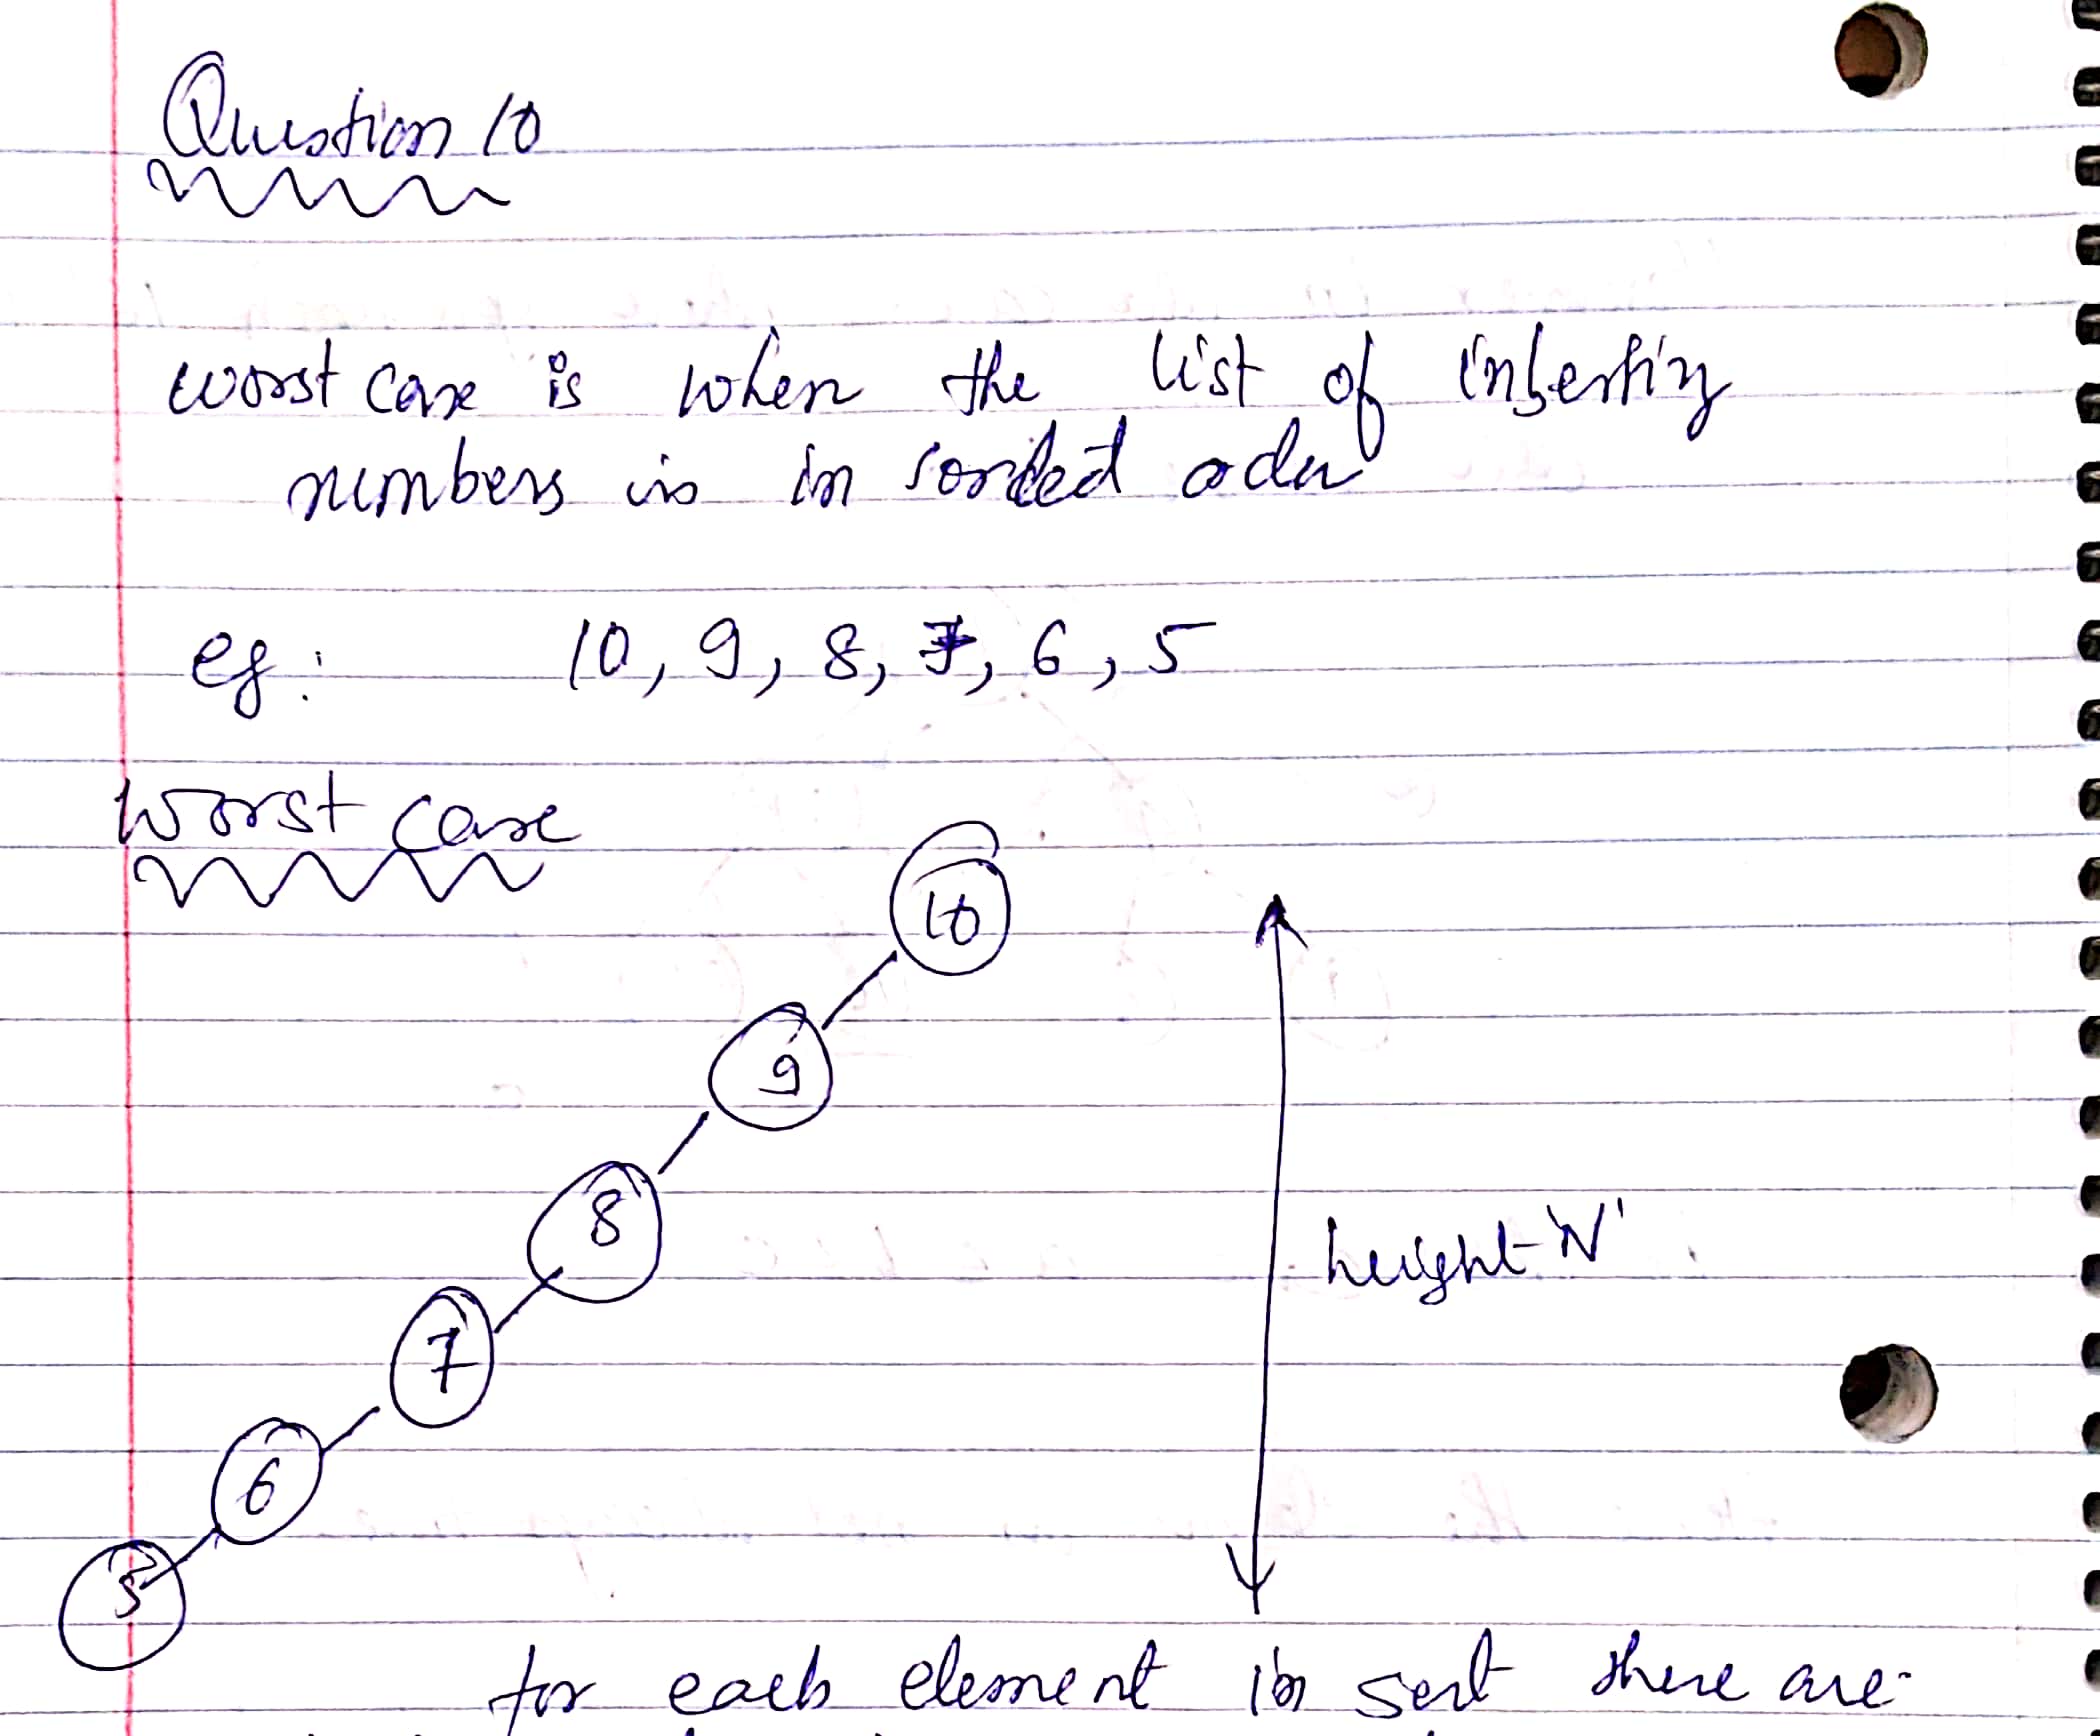 Question 10
worst case is when the list of inserting
numbers is in sorted order
eg: 10, 9, 8, 7, 6, 5
Worst case
10
9
8
height 'N'
7
6
5
for each element in sert there are